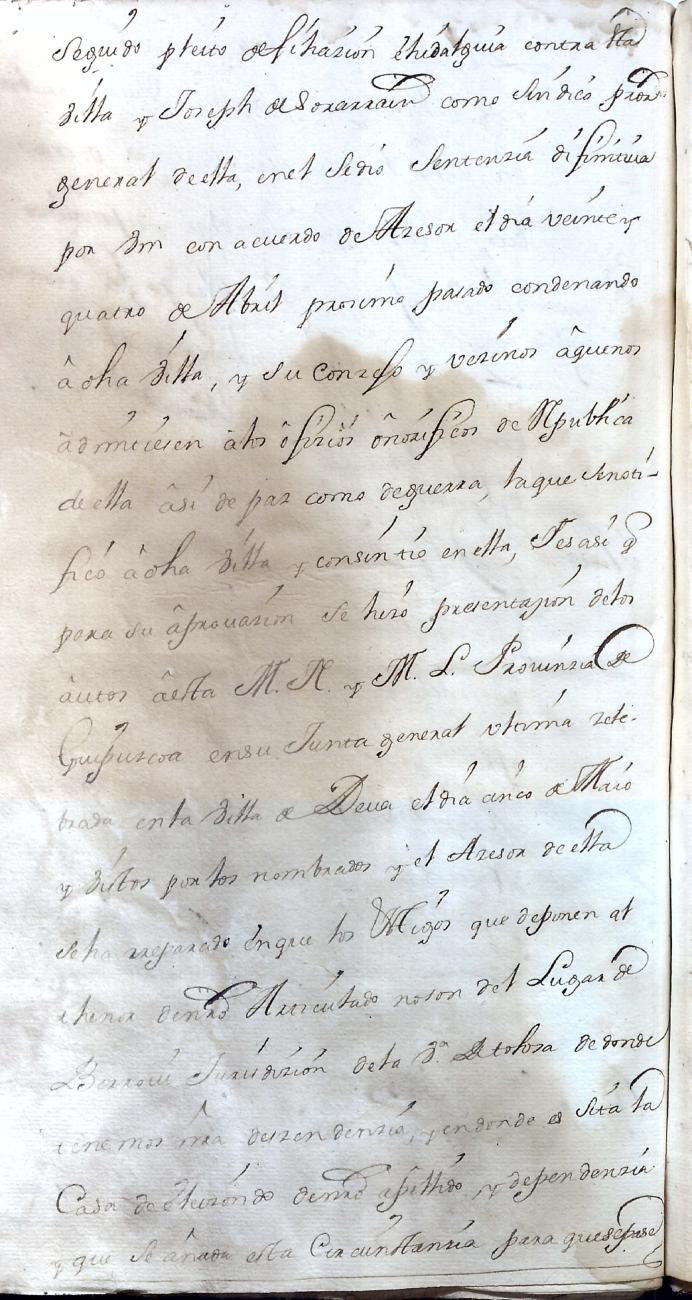 Seguido pleito de filiazion e hidalguia contra dha
Villa y Joseph de Sorarrain como Sindico pror
general de ella, en el Se dio Sentenzia difinitiva
por Vm con acuerdo de Azesor el dia veinte y
quatro de Abril proximo pasado condenando
â dha Villa, y su Conzejo y vezinos âquenos
âdmitiesen âlos ôfizios ônorificos de Republica
de ella âsi de paz como de guerra, la que se noti-
ficó â dha Villa y consintio en ella, Yes asi q
para su âprovazion se hizo presentazion delos
âutos âesta M. N. y M. L. Provinzia de
Guipuzcoa en su Junta general ultima zele-
brada en la Villa de Deva el dia cinco de Maio
y Vistos por los nombrados y el Azesor de ella
se ha rreparado en que los ttigos que deponen al
thenor de nro Articulado no son del Lugar de
Berrovi Jurisdizion de la Va. de tolosa de donde
tenemos nra deszendenzia, y en donde es sita la
Casa de Elizondo de nro apellido, y dependenzia
y que se añada esta Circunstanzia para que se pase